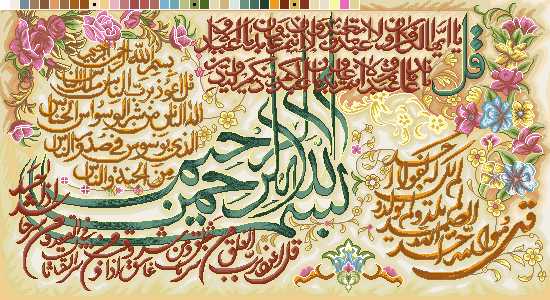 قل يا ايها الكافرون لا اعبد ما تعبدون ولا انتم عابدون ما اعبد ولا
انا عابد ما عبدتم ولا انتم عابدون ما اعبد لكم دينكم ولي دين
بسم الله الرحمن الرحيم
قل اعوذ برب الناس ملك الناس
اله الناس من شر الوسواس الخناس
الذي يوسوس في صدور الناس
من الجنة والناس
بسم الله الرحمن الرحيم
قل هو الله احد الله
الصمد لم يلد ولم يولد
ولم يكن له كفوا احد
قل اعوذ برب الفلق من شر ما خلق ومن شر غاسق اذا وقب ومن شر النفاثات في العقد ومن شر حاسد اذا حسد